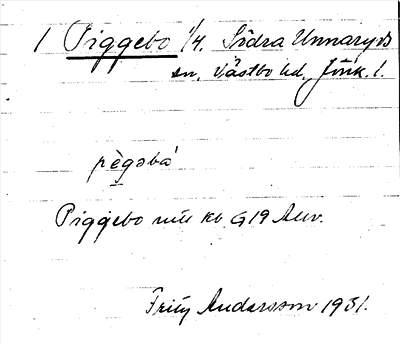 1 Piggebo 1/4. Södra Unnaryds
sn. Västbo hd. Jönk. l.
pègəbá
Piggebo kb. G 19 Auv.
Fritz Andersson 1931.